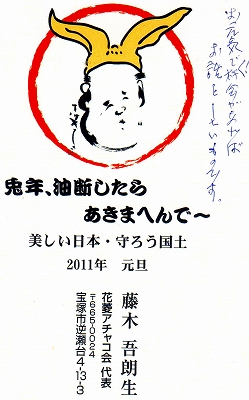 お元気で機会があれば
お話をしたいものです。
兎年、油断したら
あきまへんで～
美しい日本・守ろう国土
2011年 元旦
藤木 吾朗生
花菱アチャコ会 代表
〒665-0024
宝塚市逆瀬台4-13-3